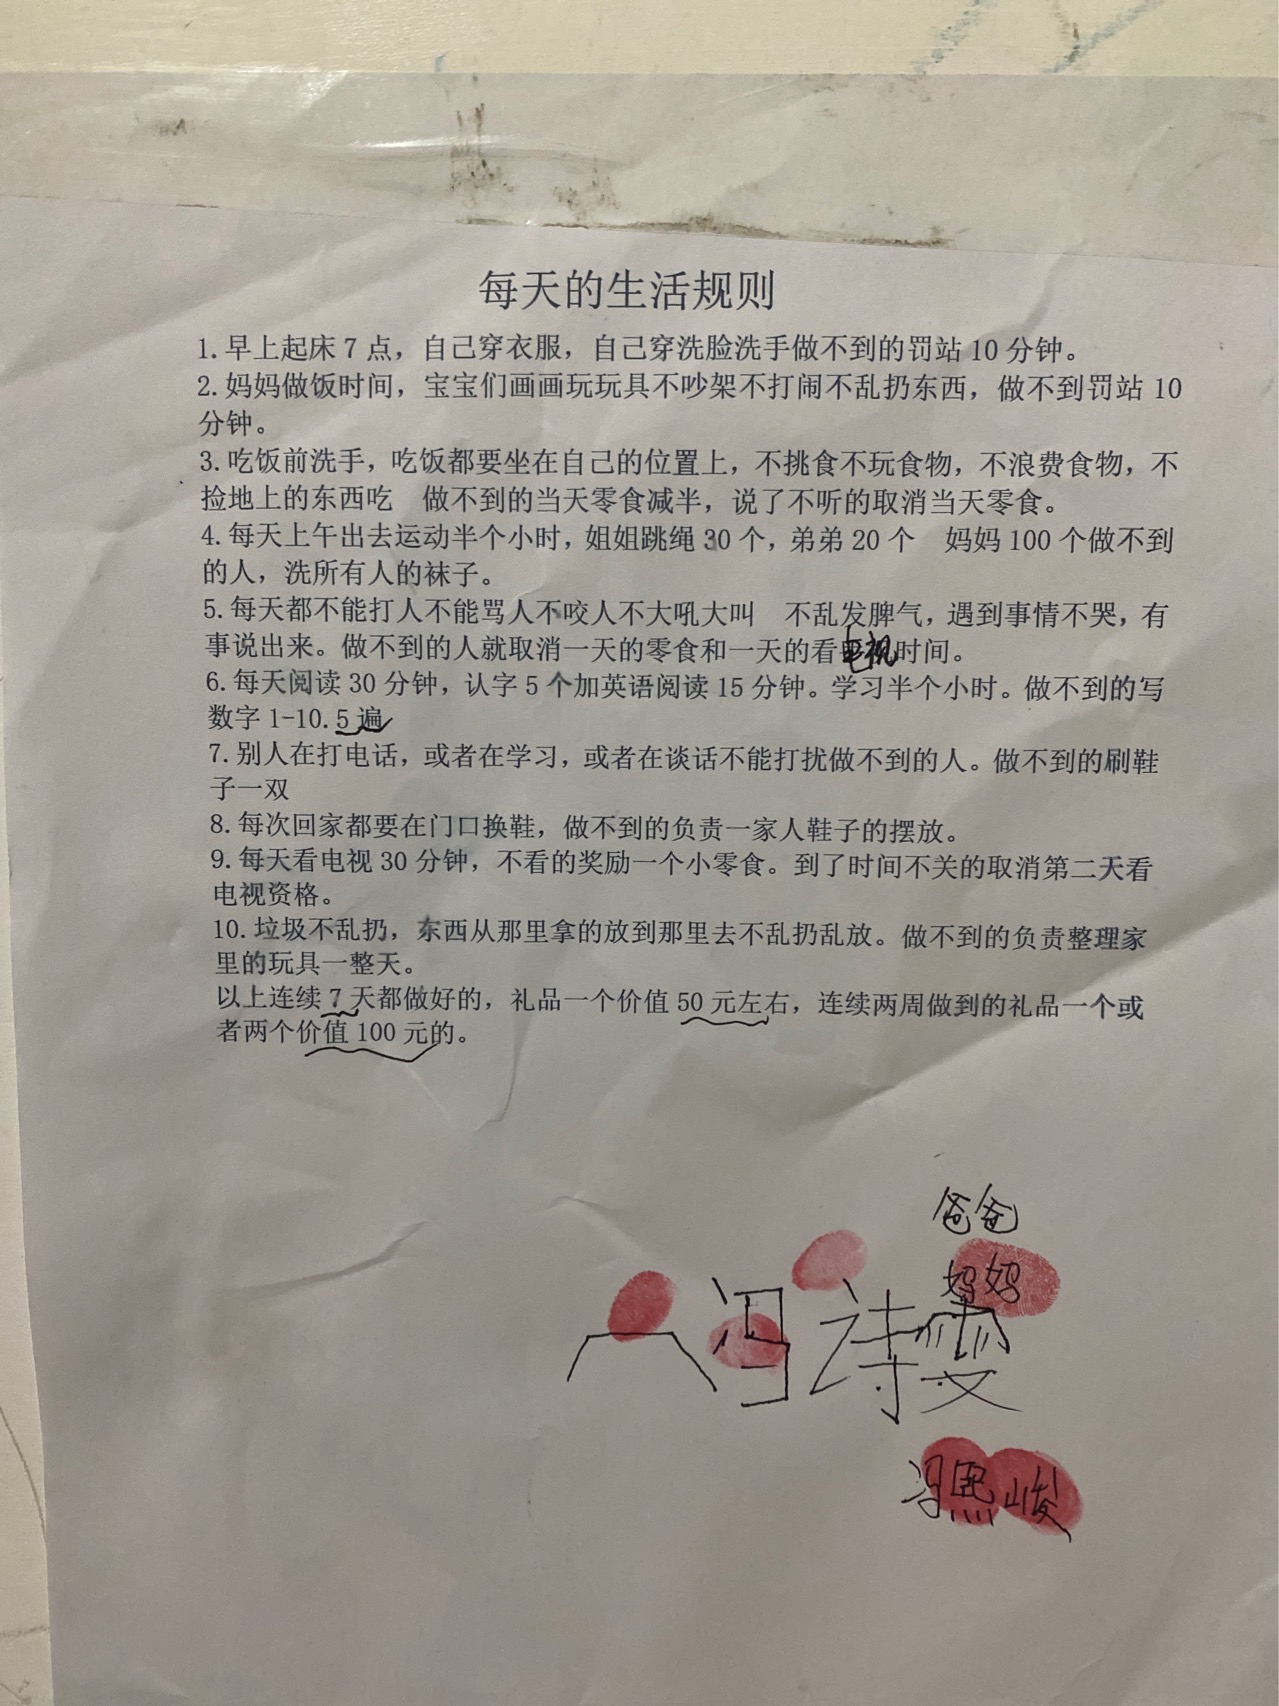 每天的生活规则
1.早上起床7点，自己穿衣服，自己穿洗脸洗手做不到的罚站10分钟。
2.妈妈做饭时间，宝宝们画画玩玩具不吵架不打闹不乱扔东西，做不到罚站10
分钟。
3.吃饭前洗手，吃饭都要坐在自己的位置上，不挑食不玩食物，不浪费食物，不
捡地上的东西吃　做不到的当天零食减半，说了不听的取消当天零食。
4.每天上午出去运动半个小时，姐姐跳绳30个，弟弟20个　妈妈100个做不到
的人，洗所有人的袜子。
5.每天都不能打人不能骂人不咬人不大吼大叫　不乱发脾气，遇到事情不哭，有
事说出来。做不到的人就取消一天的零食和一天的看电视时间。
6.每天阅读30分钟，认字5个加英语阅读15分钟。学习半个小时。做不到的写
数字1-10.5遍
7.别人在打电话，或者在学习，或者在谈话不能打扰做不到的人。做不到的刷鞋
子一双
8.每次回家都要在门口换鞋，做不到的负责一家人鞋子的摆放。
9.每天看电视30分钟，不看的奖励一个小零食。到了时间不关的取消第二天看
电视资格。
10.垃圾不乱扔，东西从那里拿的放到那里去不乱扔乱放。做不到的负责整理家
里的玩具一整天。
以上连续7天都做好的，礼品一个价值50元左右，连续两周做到的礼品一个或
者两个价值100元的。
爸爸
妈妈
冯诗
冯熙峻